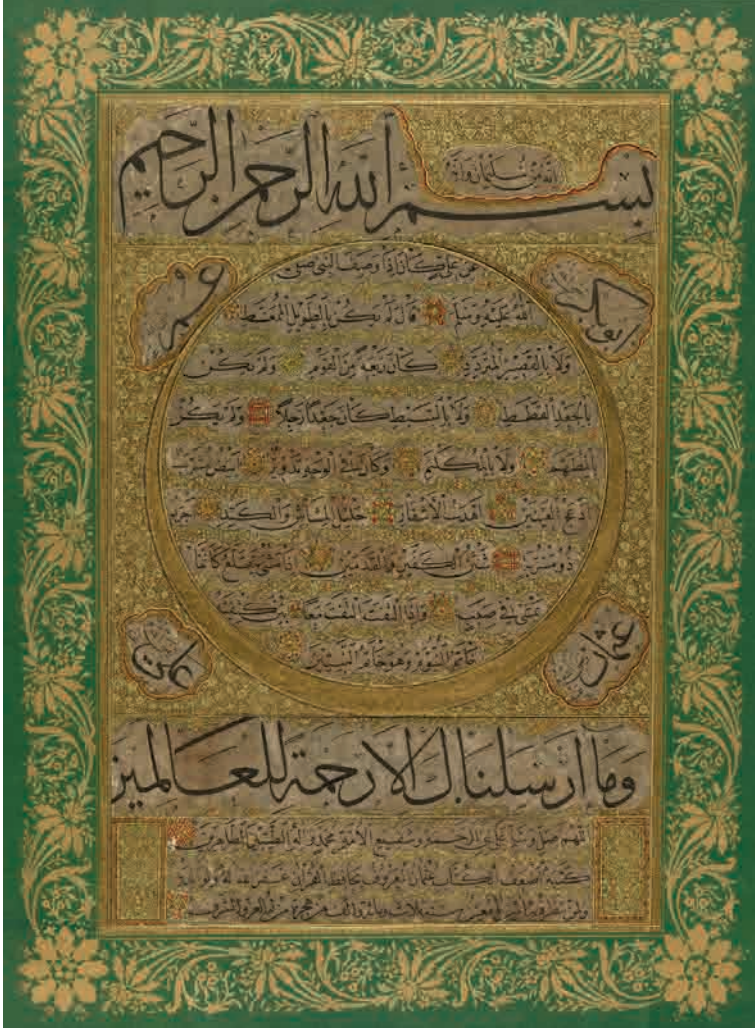 انه من سليمان وانه
بسم الله الرحمن الرحيم
ابوبكر
عمر
عن علي كان اذا وصف النبي صلى
الله عليه وسلم قال لم يكن بالطويل الممغط
ولا بالقصير المتردد كان ربعة من القوم ولم يكن
بالجعد القطط ولا بالسبط كان جعدا رجلا ولم يكن
بالمطهم ولا بالمكلثم وكان في الوجه تدوير ابيض مشرب
ادعج العينين اهدب الاشفار جليل المشاش والكتد اجرد
ذو مسربة شثن الكفين والقدمين اذا مشى تقلع كانما
يمشي في صبب واذا التفت التفت معا بين كتفيه
خاتم النبوة وهو خاتم النبيين
عثمان
علي
وما ارسلناك الا رحمة للعالمين
اللهم صل وسلم على نبي الرحمة وشفيع الامة محمد وآله الطيبين الطاهرين
كتبه اضعف الكتاب عثمان المعروف بحافظ القرآن غفر الله له ولوالديه
سنة ثلاث ومائة والف من هجرة من له العز والشرف